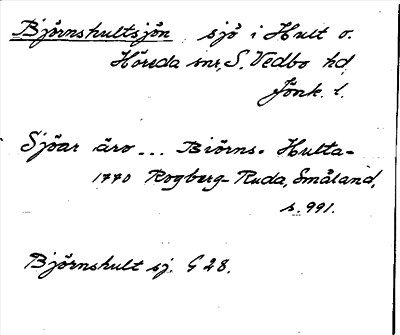 Björnshultsjön sjö i Hult o.
Höreda snr, S. Vedbo hd
Jönk. l.
Sjöar äro ... Biörns- Hulta-
1770 Rogberg-Ruda, Småland,
s. 991.
Björnshult sj. G 28.